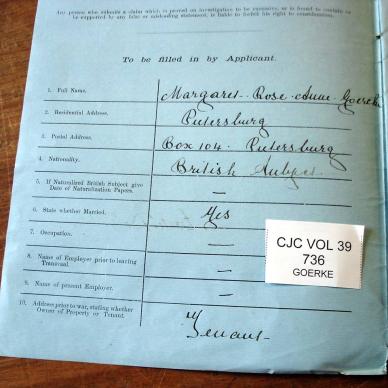 Any person who submits a claim which is proved on investigation to be excessive, or is found to contain or
be supported by any false or misleading statement, is liable to forfeit his right to consideration.
To be filled in by Applicant.
1. Full Name. Margaret Rose Anne Goerke
2. Residential Address. Pietersburg
3. Postal Address. Box 104. Pietersburg
4. Nationality. British Subject
5. If Naturalized British Subject give
Date of Naturalization Papers. —
6. State whether Married. Yes
7. Occupation. —
8. Name of Employer prior to leaving
Transvaal. —
9. Name of present Employer. —
10. Address prior to war, stating whether
Owner of Property or Tenant. Tenant
CJC VOL 39
736
GOERKE